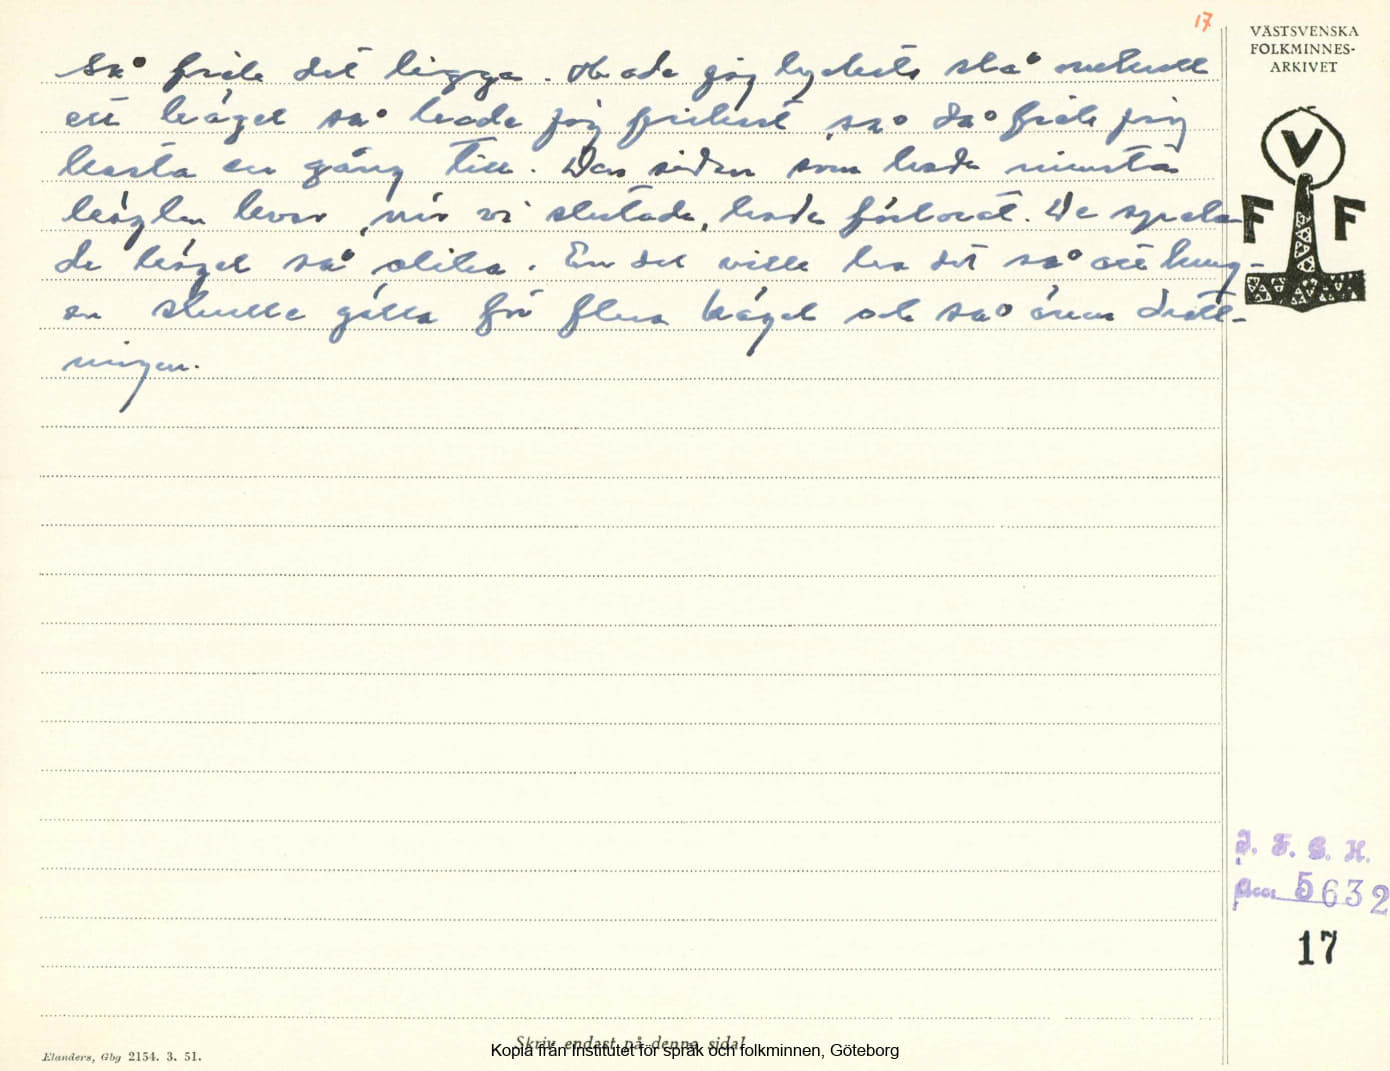 17
VÄSTSVENSKA
FOLKMINNES-
ARKIVET
så fick det ligga. Hade jag lyckats slå omkull
ett kägel så hade jag friskust så då fick jag
kasta en gång till. Den sidan som hade minsta
käglan kvar, när vi slutade, hade förlorat. De spela-
de kägel så olika. En del ville ha det så att kung-
en skulle gälla för flera kägel och så även drott-
ningen.
V
F F
I. F. G. H.
Acc 5632
17
Skriv endast på denna sida!
Elanders, Gbg 2154. 3. 51.
Kopia från Institutet för språk och folkminnen, Göteborg